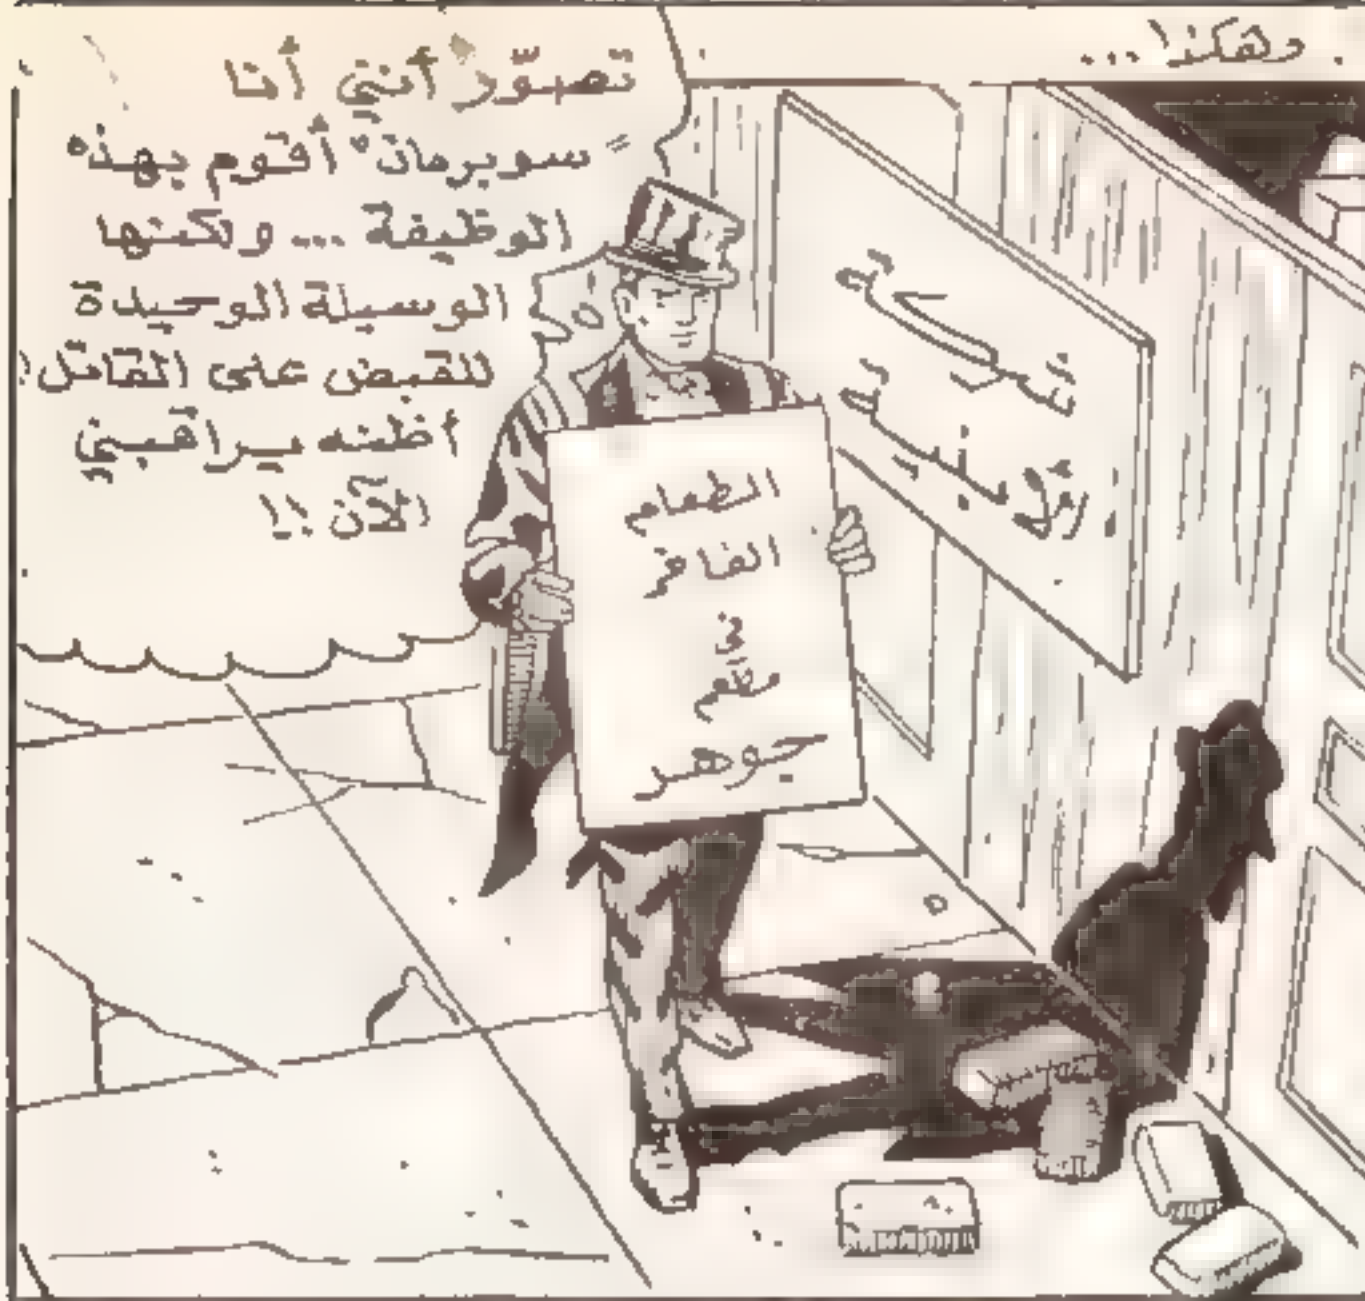 وهكذا...
تصوّر أنني أنا
"سوبرمان" أقوم بهذه
الوظيفة ... ولكنها
الوسيلة الوحيدة
للقبض على القاتل!
أظنه يراقبني
الآن !!
شركة
الطعام
الفاخر
في
مطعم
جوهر